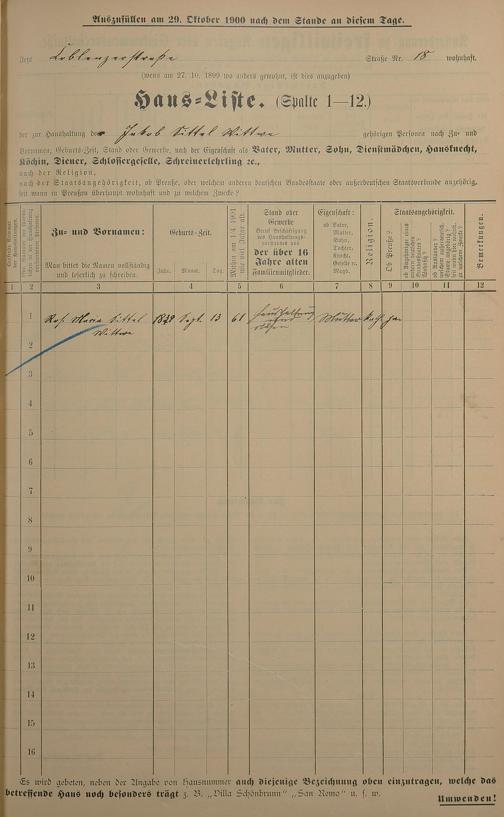 Auszufüllen am 29. Oktober 1900 nach dem Stande an diesem Tage.
Jetzt Coblenzerstraße Straße Nr. 18 wohnhaft.
(wenn am 27. 10. 1899 wo anders gewohnt, ist dies anzugeben)
Haus-Liste. (Spalte 1—12.)
der zur Haushaltung der Jakob Sittel Wittwe gehörigen Personen nach Zu- und
Vornamen, Geburts-Zeit, Stand oder Gewerbe, nach der Eigenschaft als Vater, Mutter, Sohn, Dienstmädchen, Hausknecht,
Köchin, Diener, Schlossergeselle, Schreinerlehrling ec.,
nach der Religion,
nach der Staatsangehörigkeit, ob Preuße, oder welchem anderen deutschen Bundesstaate oder außerdeutschen Staatsverbande angehörig,
seit wann in Preußen überhaupt wohnhaft und zu welchem Zwecke?
Zu- und Vornamen:
Man bittet die Namen vollständig
und leserlich zu schreiben.
Geburts-Zeit.
Jahr. Monat. Tag.
Mithin am 1/4 1901
wie viel Jahre alt.
Stand oder
Gewerbe
der über 16
Jahre alten
Familienmitglieder.
Eigenschaft:
ob Vater,
Mutter,
Sohn,
Tochter,
Knecht,
Geselle ec.
Magd.
Religion.
Staatsangehörigkeit.
Ob Preuße?
Bemerkungen.
1 2 3 4 5 6 7 8 9 10 11 12
1 Maria Sittel Wittwe 1839 Sept. 13 61 Haushaltung Mutter kath. ja
2
3
5
6
7
8
9
10
11
12
13
14
15
16
Es wird gebeten, neben der Angabe von Hausnummer auch diejenige Bezeichnung oben einzutragen, welche das
betreffende Haus noch besonders trägt z. B. „Villa Schönbrunn" „San Remo" u. s. w.
Umwenden!